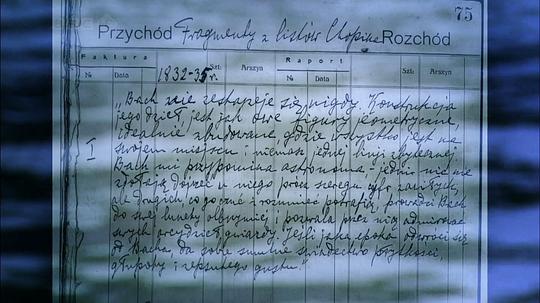 75
Przychód Fragmenty z listów Chopina Rozchód
Faktura Szt: Arszyn Raport Szt: Arszyn
№ Data 1832-35 r. № Data
„Bach nie zestarzeje się nigdy. Konstrukcja
jego dzieł jest jak owe figury geometryczne,
idealnie zbudowane gdzie wszystko jest na
I swojem miejscu i niemasz jednej linji zbytecznej
Bach mi przypomina astronoma. Jedni nic nie
u niego procz szeregu cyfr zawiłych,
ale drugich, co go czuć i rozumieć potrafią, prowadzi Bach
do swej lunety olbrzymiej i pozwala przez nią admirować
swych arcydzieł gwiazdy. Jeśli jaka epoka odwróci się
od Bacha, da sobie smutne świadectwo płytkości,
głupoty i zepsutego gustu."